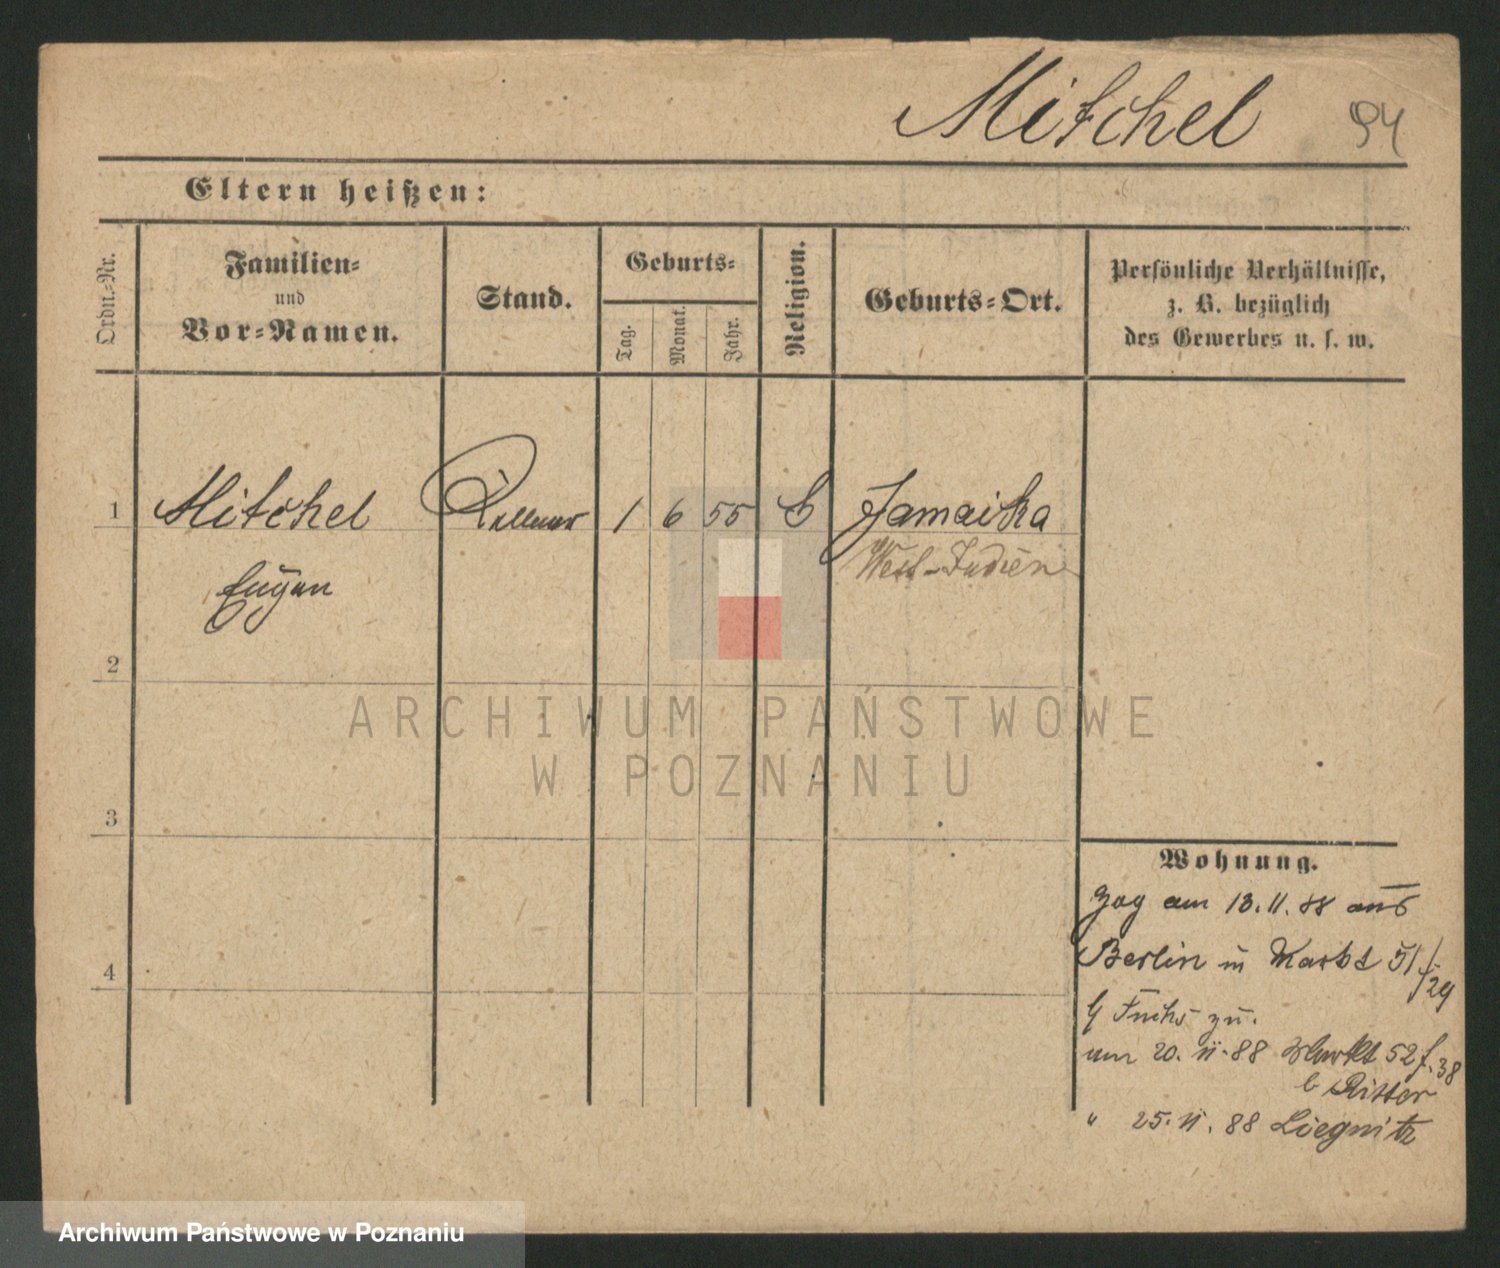 Mitchel 94
Eltern heißen:
Ordn.-Nr.
Familien-
und
Vor-Namen.
Stand.
Geburts-
Tag.
Monat.
Jahr.
Religion.
Geburts-Ort.
Persönliche Verhältnisse,
z. B. bezüglich
des Gewerbes u. s. w.
1 Mitchel Kellner 1 6 55 Jamaika
West-Indien
Eugen
2
3
4
Wohnung.
Zog am 13.11.88 aus
Berlin in Markt 51/29
b Fuchs zu.
am 20.11.88 Markt 52 f. 38
b Ritter
" 25.11.88 Liegnitz
ARCHIWUM PAŃSTWOWE
W POZNANIU
Archiwum Państwowe w Poznaniu